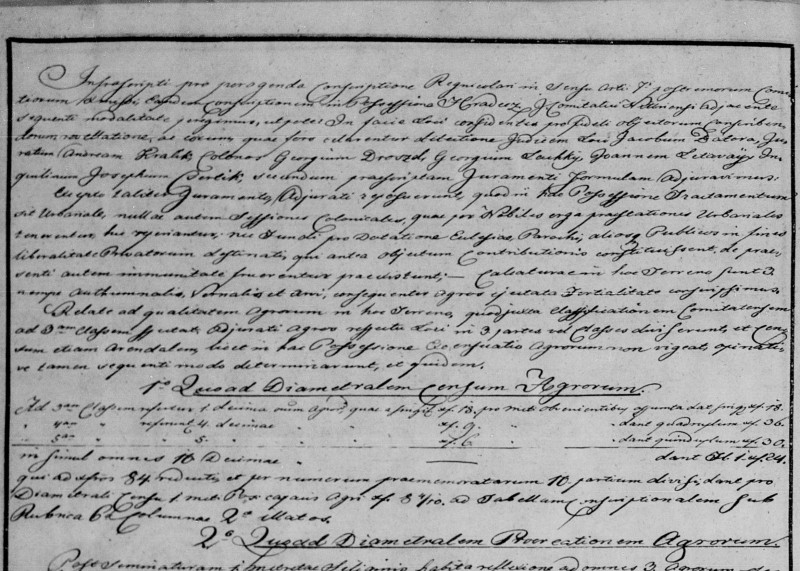 Infrascripti pro peragenda Conscriptione Regnicolari in Sensu Arti 7i postremorum Comi
tiorum Regni, ejusdem conscriptionem in Possessione Hradek I. Comitatui Nittriensi adjacente
sequenti modalitate peregimus, utpote: In facie Loci considentes pro fideli objectorum conscriben
dorum relatione, ac eorum, quae foro celarentur detectione Judicem Loci Jacobum Ju
ratum Andream Kralik, Colonos Georgium Drozd, Georgium Joannem Letavaÿ In
quilinum Josephum secundum praescriptam Juramenti Formulam adjuravimus:
taliter Juramento, Adjurati reposuerunt, quod in hac Possessione Tractamentum
sit Urbariale, nullae autem Sessiones Colonicales, quae per Nobiles erga praestationes Urbariales
tenerentur, hic reperiantur; nec Fundi pro Dotatione Eclesiae, Parochi, aliosq Publicos in fines
liberalitate Privatorum destinati, qui antea objectum Contributionis constituissent, de prae
senti autem immunitate fruerentur praeexistunt; — Calcaturae in hoc Terreno sunt 3
nempe Authumnalis, Vernalis, et Avri, consequenter Agros ejectata Fertilitate conscripsimus.
Relate ad qualitatem Agrorum in hoc Terreno, quod juxta Classificationem Comitatensem
ad 3am Classem spectat, Adjurati Agros respectu Loci in 3 partes vel Classes diviserunt, et Cen
sum etiam Arendalem, licet in hac Possessione Exarendatio Agrorum non vigeat, opinati
ve tamen sequenti modo determinarunt, et quidem.
1o Quoad Diametralem Censum Agrorum.
Ad 3am Classem refertur 1 decima omn Agror, quae a singl xf. 18. pro meti obvenientibus sumta dat simpl xf. 18.
" 4am " referunt. 4. decimae " " " " xf. 9. " " dant quadruplum xf. 36.
" 5am " " 5. " " " " xf. 6 " " dant quintuplum xf. 30.
in simul omnes 10 Decimae " — dant Fl. 1. xf. 24.
qui ad xfros 84 reducti, et per numerum praememoratarum 10 partium divisi, dant pro
Diametrali Censu 1 meti Pos capacis Agri xf. 8 4/10. ad Tabellam Conscriptionalem Sub
Rubrica 6a Columnae 2ae illatos.
2o Quoad Diametralem Procreationem Agrorum.
Post Seminaturam 1 metretae Siliginis habita reflexione ad omnes 3 Agrorum